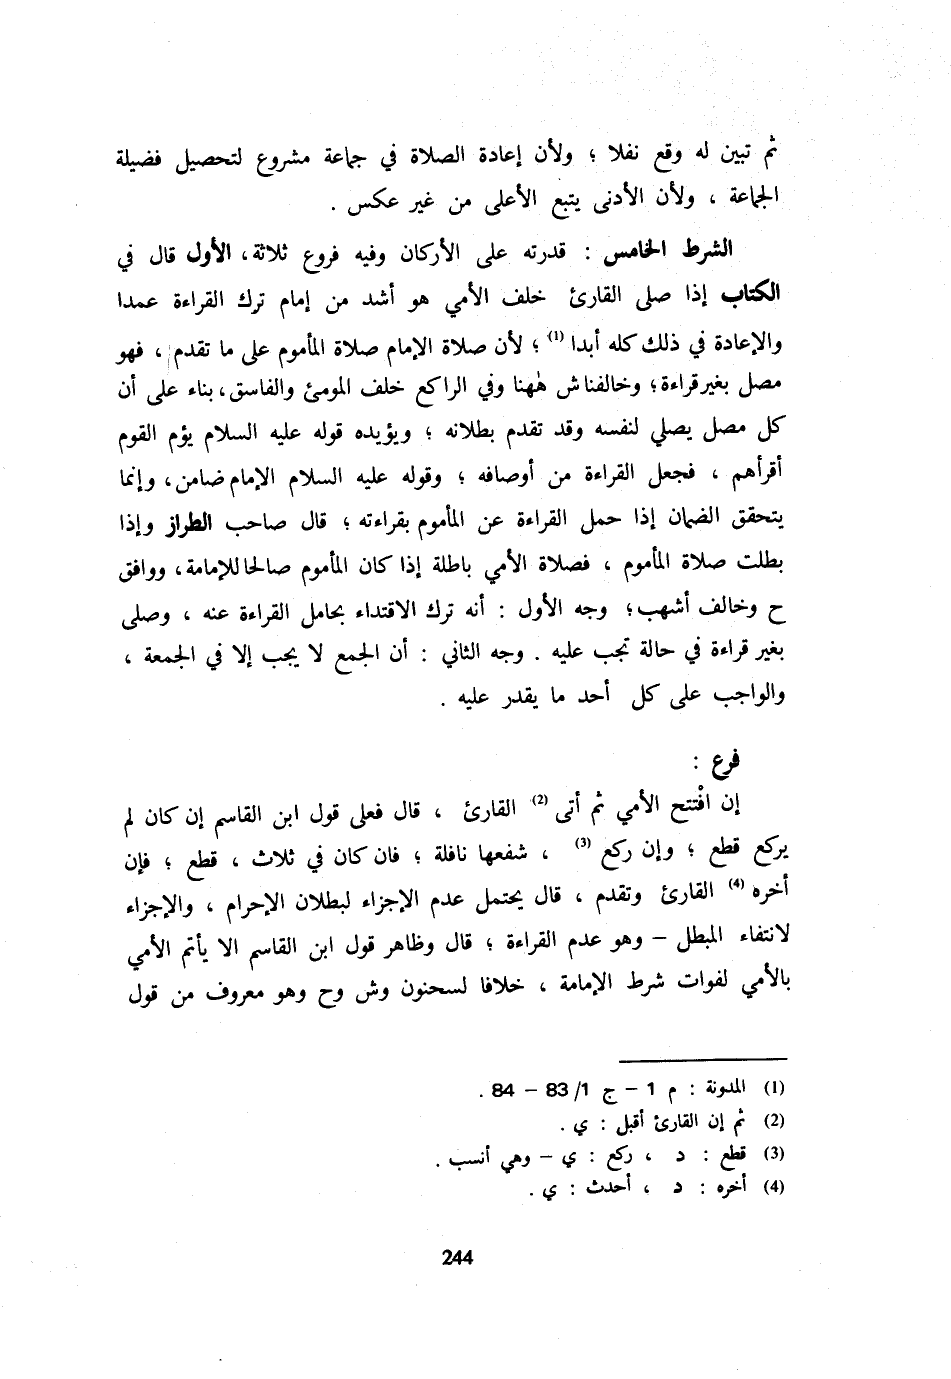 ثم تبين له وقع نفلا ؛ ولأن إعادة الصلاة في جماعة مشروع لتحصيل فضيلة
الجماعة ، ولأن الأدنى يتبع الأعلى من غير عكس .
الشرط الخامس : قدرته على الأركان وفيه فروع ثلاثة ، الأول قال في
الكتاب إذا صلى القارئ خلف الأمي هو أشد من إمام ترك القراءة عمدا
والإعادة في ذلك كله أبدا (1) ؛ لأن صلاة الإمام صلاة المأموم على ما تقدم ، فهو
مصل بغير قراءة ؛ وخالفنا ش ههنا وفي الراكع خلف المومئ والفاسق ، بناء على أن
كل مصل يصلي لنفسه وقد تقدم بطلانه ؛ ويؤيده قوله عليه السلام يؤم القوم
أقرأهم ، فجعل القراءة من أوصافه ؛ وقوله عليه السلام الإمام ضامن ، وإنما
يتحقق الضمان إذا حمل القراءة عن المأموم بقراءته ؛ قال صاحب الطراز وإذا
بطلت صلاة المأموم ، فصلاة الأمي باطلة إذا كان المأموم صالحا للإمامة ، ووافق
ح وخالف أشهب ؛ وجه الأول : أنه ترك الاقتداء بحامل القراءة عنه ، وصلى
بغير قراءة في حالة تجب عليه . وجه الثاني : أن الجمع لا يجب إلا في الجمعة ،
والواجب على كل أحد ما يقدر عليه .
فرع :
إن افْتتح الأمي ثم أتى (2) القارئ ، قال فعلى قول ابن القاسم إن كان لم
يركع قطع ؛ وإن ركع (3) ، شفعها نافلة ؛ فان كان في ثلاث ، قطع ؛ فإن
أخره (4) القارئ وتقدم ، قال يحتمل عدم الإجزاء لبطلان الإحرام ، والإجزاء
لانتفاء المبطل – وهو عدم القراءة ؛ قال وظاهر قول ابن القاسم الا يأتم الأمي
بالأمي لفوات شرط الإمامة ، خلافا لسحنون وش وح وهو معروف من قول
(1) المدونة : م 1 – ج 1/ 83 – 84 .
(2) ثم إن القارئ أقبل : ي .
(3) قطع : د ، ركع : ي – وهي أنسب .
(4) أخره : د ، أحدث : ي .
244